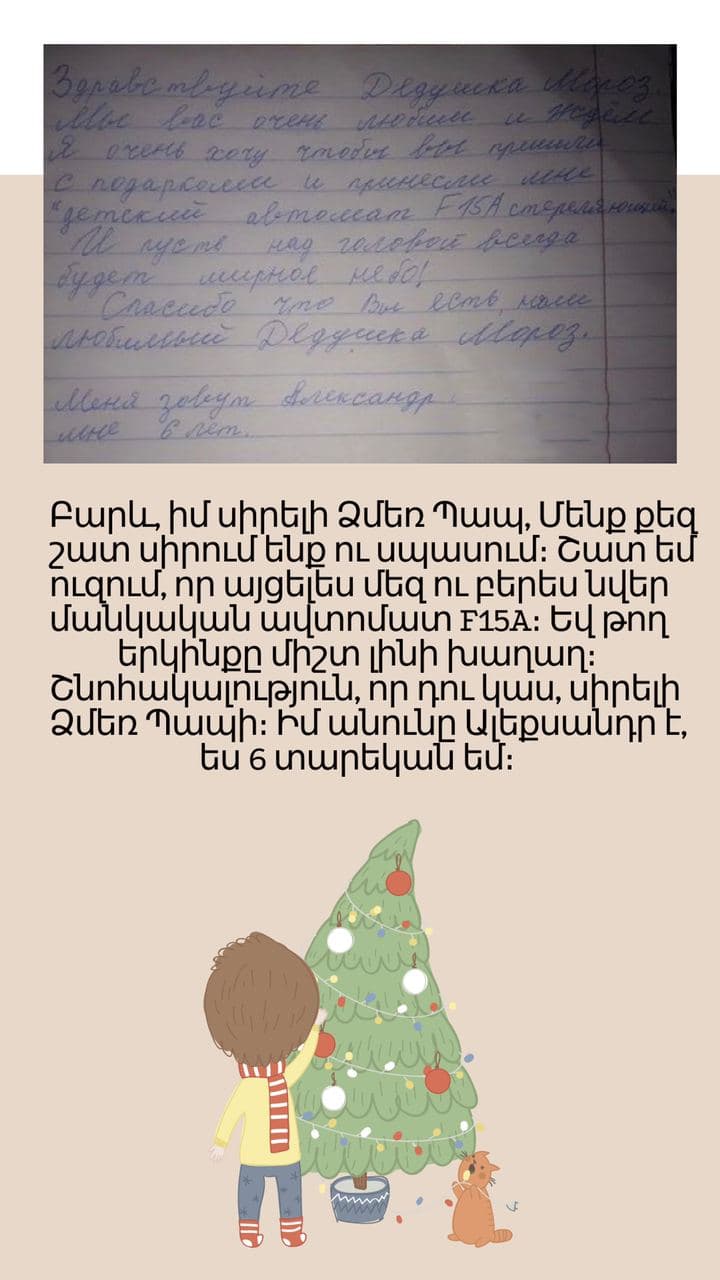 Здравствуйте Дедушка Мороз.
Мы вас очень любим и ждём
Я очень хочу чтобы вы пришли
с подарками и принесли мне
"детский автомат F15A стереляющий".
И пусть над головой всегда
будет мирное небо!
Спасибо что Вы есть, наш
любимый Дедушка Мороз.
Меня зовут Александр.
мне 6 лет.
Բարև, իմ սիրելի Ձմեռ Պապ, Մենք քեզ
շատ սիրում ենք ու սպասում։ Շատ եմ
ուզում, որ այցելես մեզ ու բերես նվեր
մանկական ավտոմատ F15A։ Եվ թող
երկինքը միշտ լինի խաղաղ։
Շնոհակալություն, որ դու կաս, սիրելի
Ձմեռ Պապի։ Իմ անունը Ալեքսանդր է,
ես 6 տարեկան եմ։